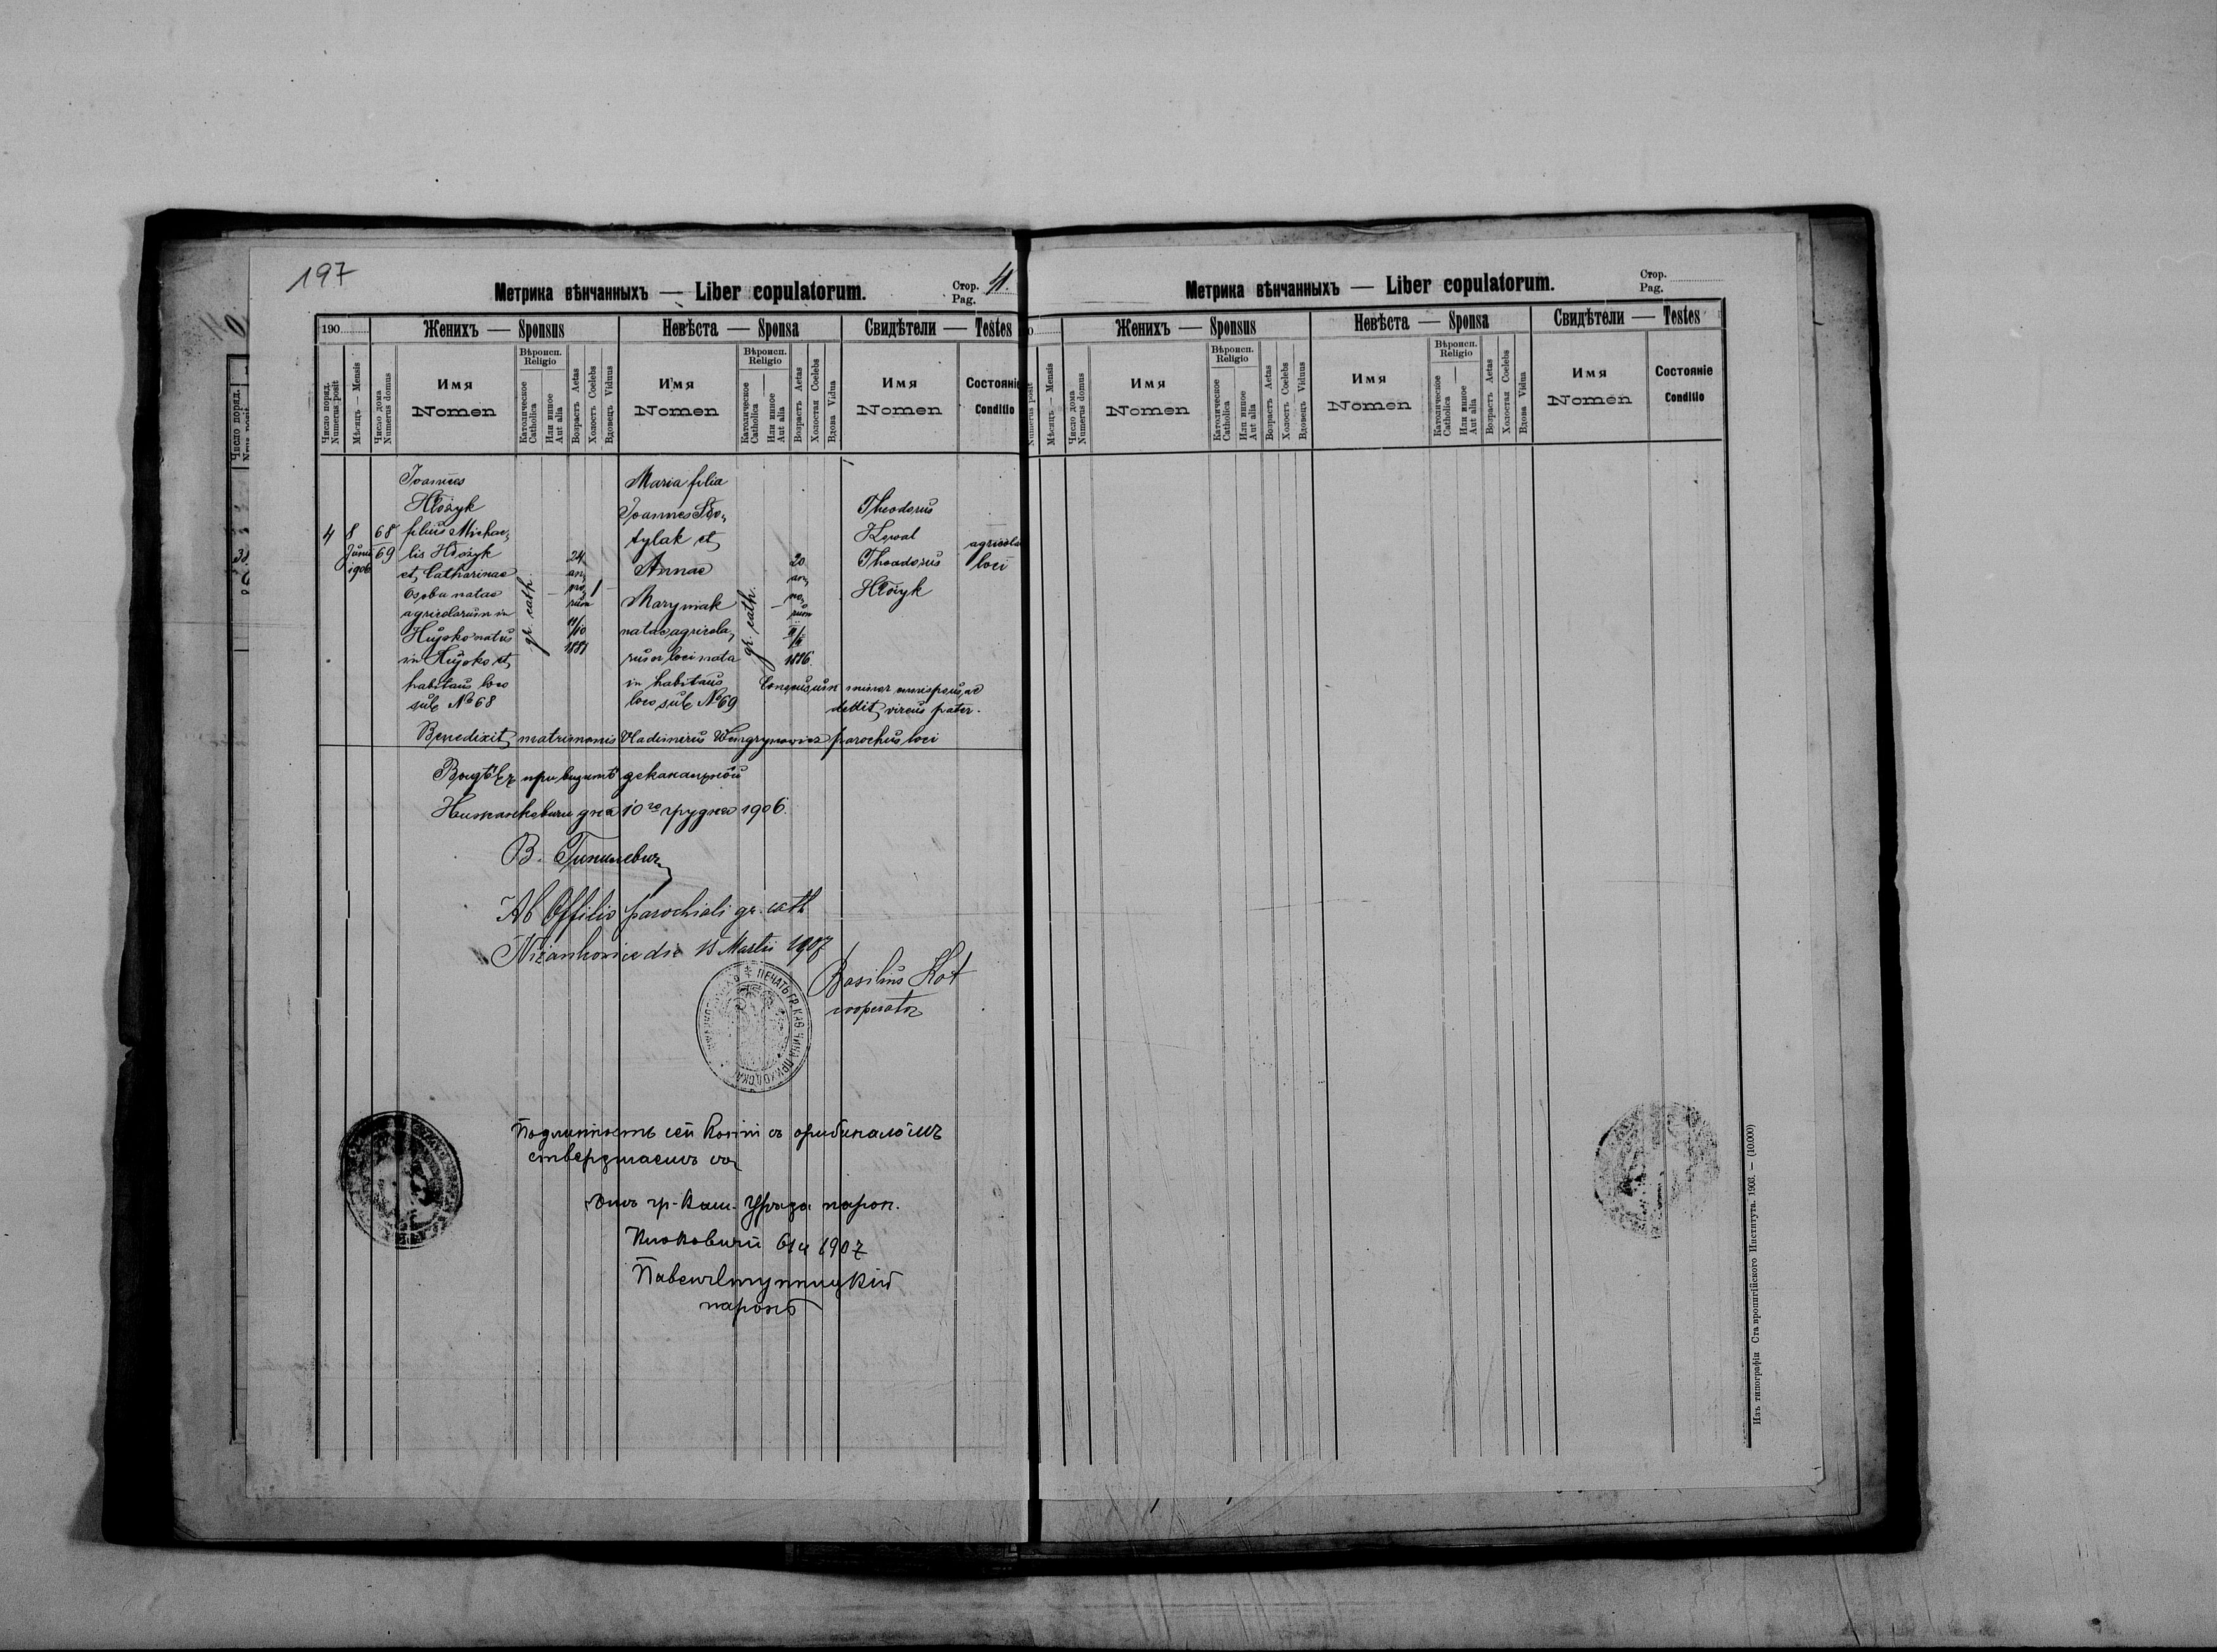 197
Метрика вѣнчанныхъ — Liber copulatorum.
Стор. 4.
Pag.
190
Женихъ — Sponsus
Невѣста — Sponsa
Свидѣтели — Testes
Число поряд.
Numerus posit
Мѣсяцъ — Mensis
Число дома
Numerus domus
Имя
Nomen
Вѣроисп.
Religio
Католическое
Catholica
Или инное
Aut alia
Возрастъ Aetas
Холостъ Coelebs
Вдовецъ Viduus
Имя
Nomen
Вѣроисп.
Religio
Католическое
Catholica
Или инное
Aut alia
Возрастъ Aetas
Холостая Coelebs
Вдова Vidua
Имя
Nomen
Состояніе
Conditio
4
8
Junii
1906
68
69
Joannes
Hłożyk
filius Michae,
lis Hłożyk
et Catharinae
Osoba natae
agricolarum in
Hujsko natus
in Hujsko et
habitans loco
sub № 68
gr. cath.
24
an,
no,
rum
11/10
1881
Maria filia
Joannes
tylak et
Annae
Maryniak
natae agricola,
rum loci nata
in habitans
loco sub № 69
gr. cath.
20
an,
no,
rum
1886.
Theodorus
Kowal
Theodorus
Hłożyk
agricolae
loci
minor
dedit pater.
Benedixit matrimonis Vladimirus Wengrynowicz parochus loci
при визитѣ деканальной
Нижанковичи дня 10го грудня 1906.
В.
Ab Offitio parochiali gr. cath
Niżankovice die 15 Martii 1907
Basilius Kot
cooperator
ПЕЧАТЬ ГР. КАѲ. ЧИНА ПРИХОДСКАЯ
Подлинность сей копіи съ оригиналомъ
стверджаемъ ся
Отъ гр.-кат. Уряда парох.
1907
парохъ
Метрика вѣнчанныхъ — Liber copulatorum.
Стор.
Pag.
Женихъ — Sponsus
Невѣста — Sponsa
Свидѣтели — Testes
Numerus posit
Мѣсяцъ — Mensis
Число дома
Numerus domus
Имя
Nomen
Вѣроисп.
Religio
Католическое
Catholica
Или инное
Aut alia
Возрастъ Aetas
Холостъ Coelebs
Вдовецъ Viduus
Имя
Nomen
Вѣроисп.
Religio
Католическое
Catholica
Или инное
Aut alia
Возрастъ Aetas
Холостая Coelebs
Вдова Vidua
Имя
Nomen
Состояніе
Conditio
Изъ типографіи Ставропигійского Института. 1903. — (10.000)